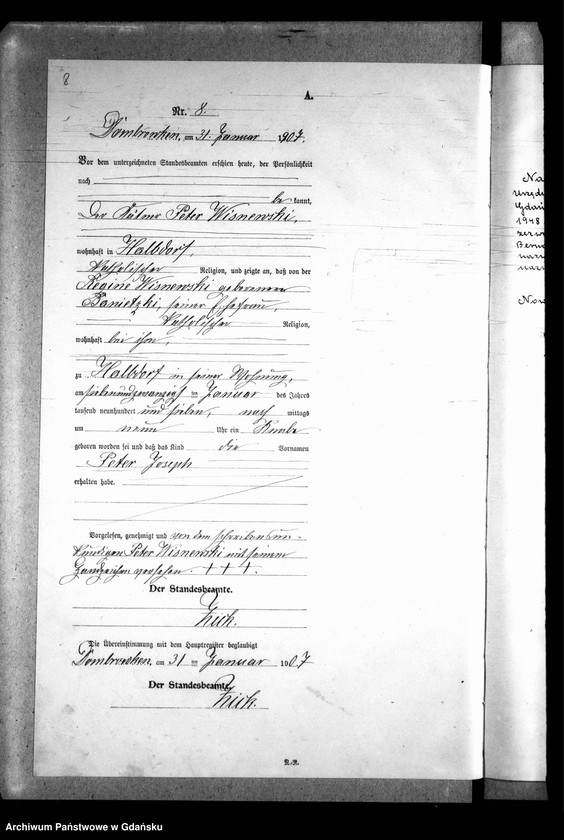 8
A.
Nr. 8.
Dombrowken, am 31. Januar 1907.
Vor dem unterzeichneten Standesbeamten erschien heute, der Persönlichkeit
nach
be kannt,
Der Kätner Peter Wisnewski,
wohnhaft in Halbdorf,
katholischer Religion, und zeigte an, daß von der
Regine Wisnewski geborenen
Banietzki, seiner Ehefrau,
katholischer Religion,
wohnhaft bei ihm,
zu Halbdorf in seiner Wohnung,
am siebenundzwanzigsten Januar des Jahres
tausend neunhundert und sieben, nach mittags
um neun Uhr ein Knabe
geboren worden sei und daß das Kind die Vornamen
Peter Joseph
erhalten habe.
Vorgelesen, genehmigt und von dem schreibensun-
kundigen Peter Wisnewski mit seinem
Handzeichen versehen. + + +.
Der Standesbeamte.
Zick.
Die Übereinstimmung mit dem Hauptregister beglaubigt
Dombrowken, am 31 ten Januar 1907
Der Standesbeamte.
Zick.
N.-R.
Na
Urzęd
Gdań
1948
Nor
Archiwum Państwowe w Gdańsku